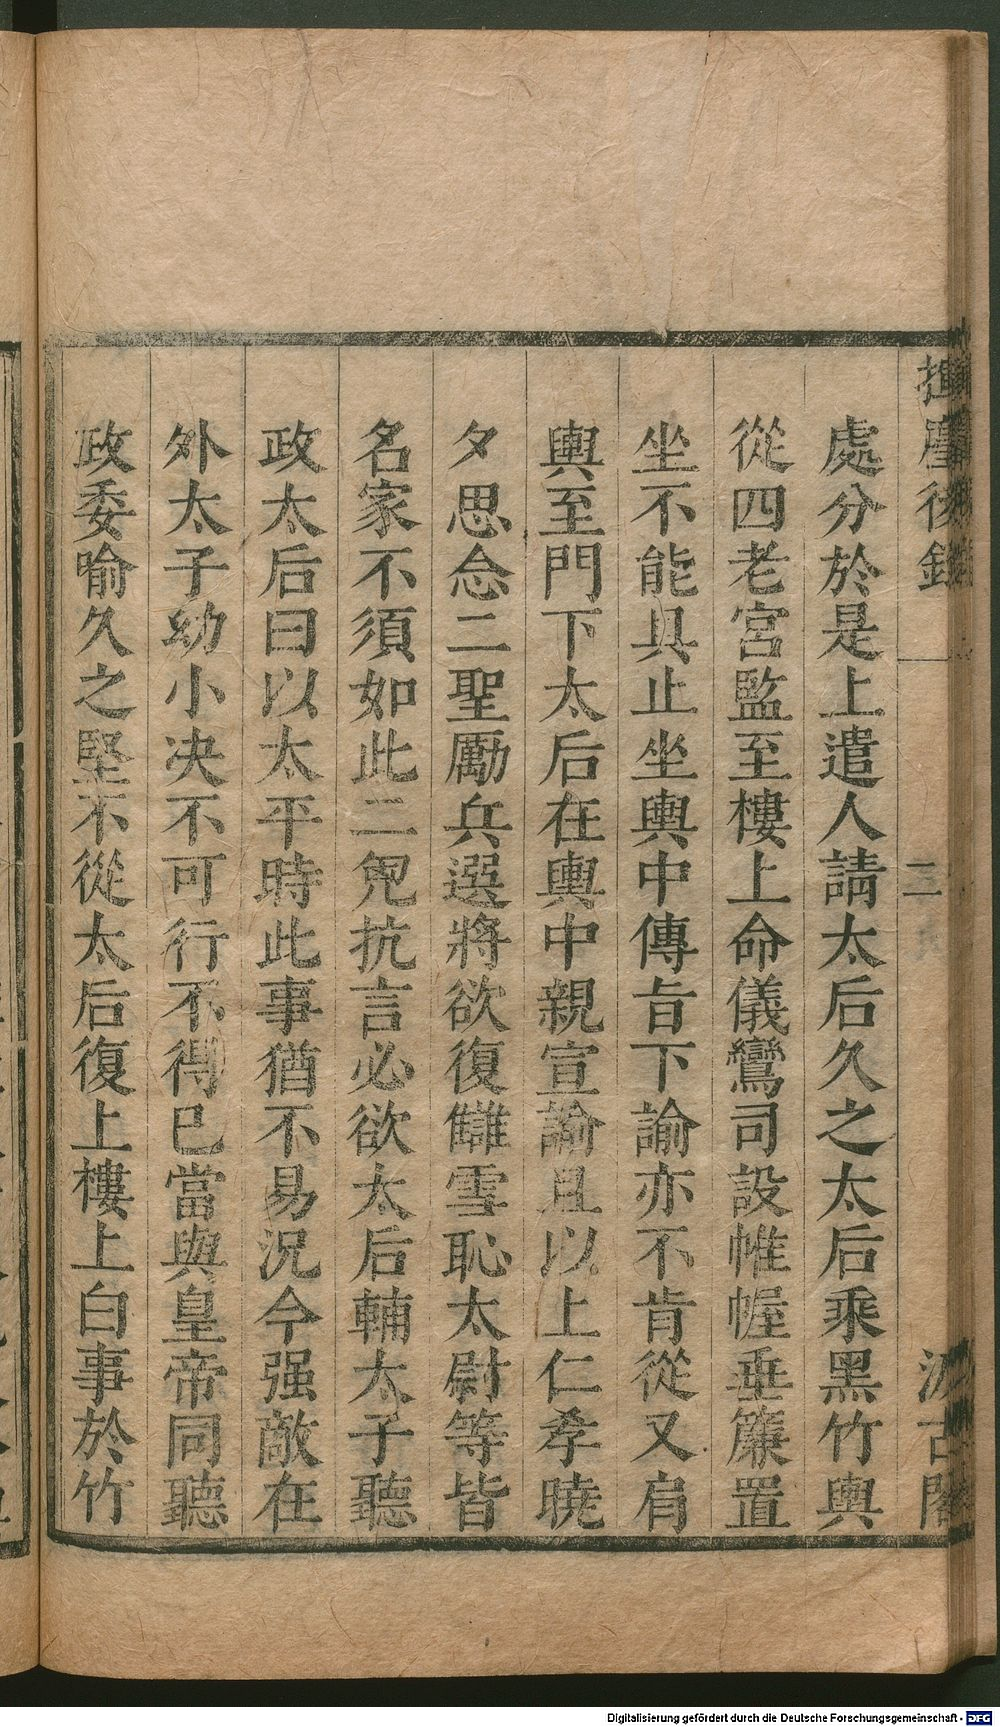 處分於是上遣人請太后久之太后乘黑竹輿
從四老宮監至樓上命儀鸞司設帷幄垂簾置
坐不能具止坐輿中傳旨下諭亦不肯從又肩
輿至門下太后在輿中親宣諭且以上仁孝曉
夕思念二聖勵兵選將欲復讎雪恥太尉等皆
名家不須如此二兇抗言必欲太后輔太子聽
政太后曰以太平時此事猶不易況今强敵在
外太子幼小决不可行不得已當與皇帝同聽
政委喻久之堅不從太后復上樓上白事於竹
二
Digitalisierung gefördert durch die Deutsche Forschungsgemeinschaft - DFG